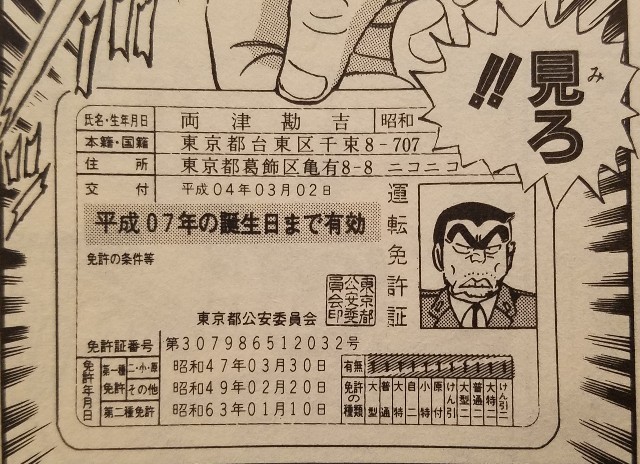 見ろ!!
み
氏名・生年月日 両津勘吉 昭和
本籍・国籍 東京都台東区千束8-707
住所 東京都葛飾区亀有8-8 ニコニコ
交付 平成04年03月02日
平成07年の誕生日まで有効
免許の条件等
運転免許証
東京都公安委員会
東京都公安委員会印
免許証番号 第307986512032号
免許年月日
第一種免許 二・小・原 昭和47年03月30日
その他 昭和49年02月20日
第二種免許 昭和63年01月10日
有無
免許の種類 大型 普通 大特 自二 小特 原付 けん引 大型二 普通二 大特二 けん引二